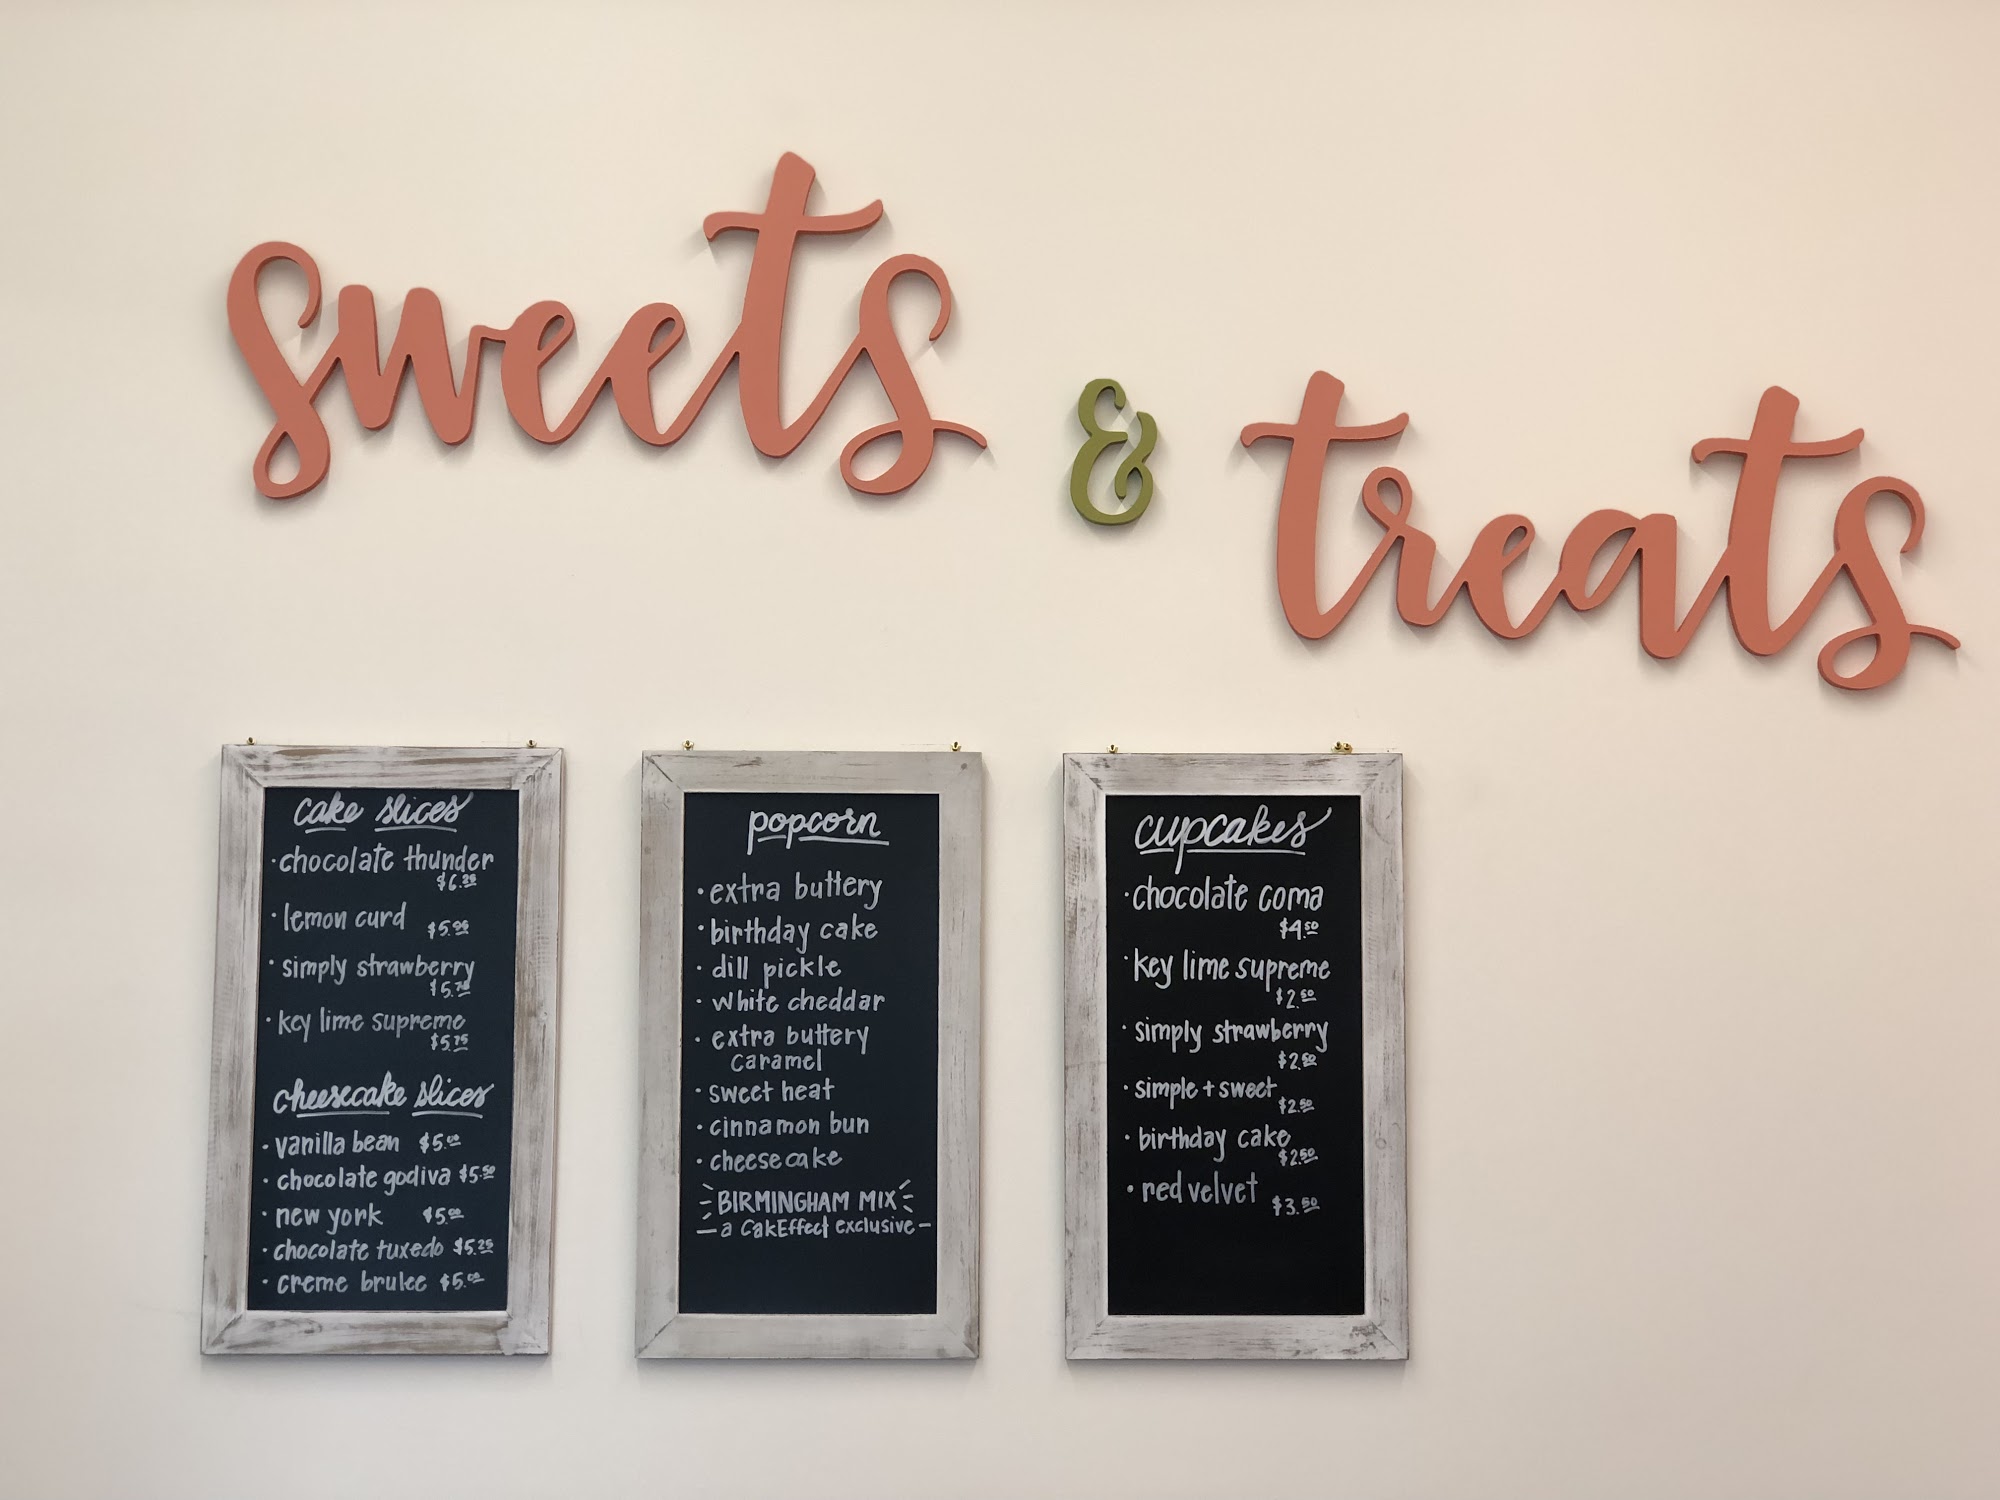 sweets & treats
cake slices
· chocolate thunder
$6.25
· lemon curd
· simply strawberry
· key lime supreme
$5.75
cheesecake slices
· vanilla bean $5.00
· chocolate godiva $5.50
· new york $5.00
· chocolate tuxedo $5.25
· creme brulee $5.00
popcorn
· extra buttery
· birthday cake
· dill pickle
· white cheddar
· extra buttery
caramel
· sweet heat
· cinnamon bun
· cheesecake
BIRMINGHAM MIX
— a CakEffect exclusive —
cupcakes
· chocolate coma
$4.50
· key lime supreme
$2.50
· simply strawberry
$2.50
· simple + sweet
$2.50
· birthday cake
$2.50
· red velvet
$3.50